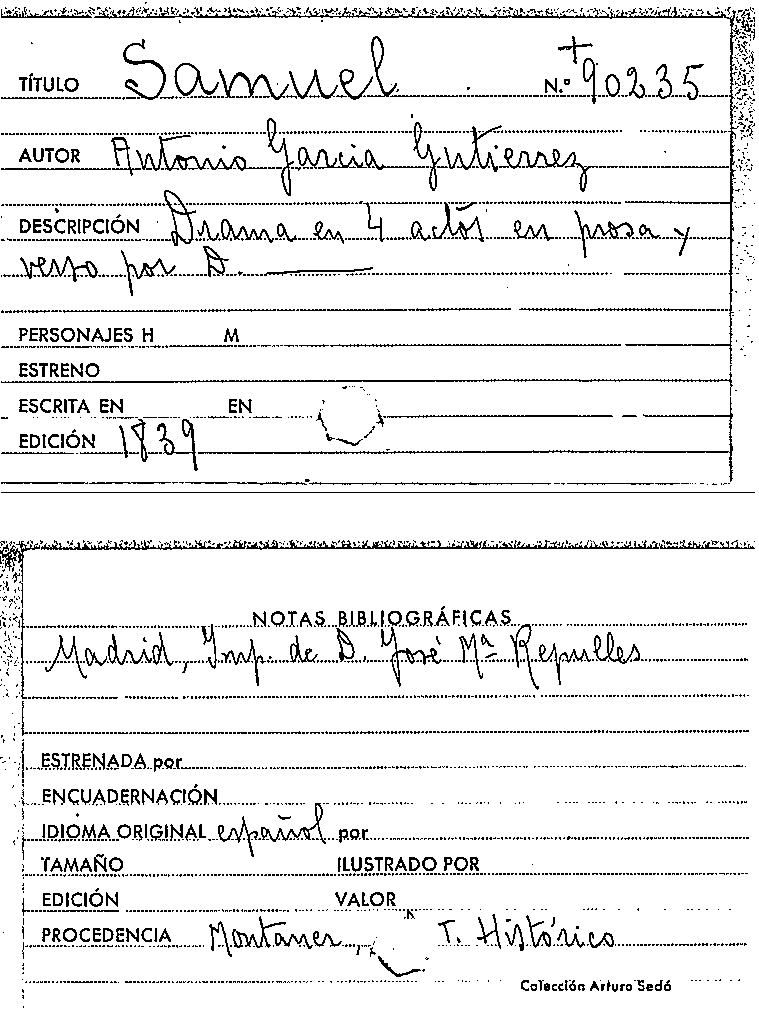 TÍTULO Samuel N.º 90235
AUTOR Antonio Garcia Gutierrez
DESCRIPCIÓN Drama en 4 actos en prosa y
verso por D. ———
PERSONAJES H M
ESTRENO
ESCRITA EN EN
EDICIÓN 1839
NOTAS BIBLIOGRÁFICAS
Madrid, Imp. de D. José Mª Repulles
ESTRENADA por
ENCUADERNACIÓN
IDIOMA ORIGINAL español por
TAMAÑO ILUSTRADO POR
EDICIÓN VALOR
PROCEDENCIA Montaner, T. Histórico
Colección Arturo Sedó